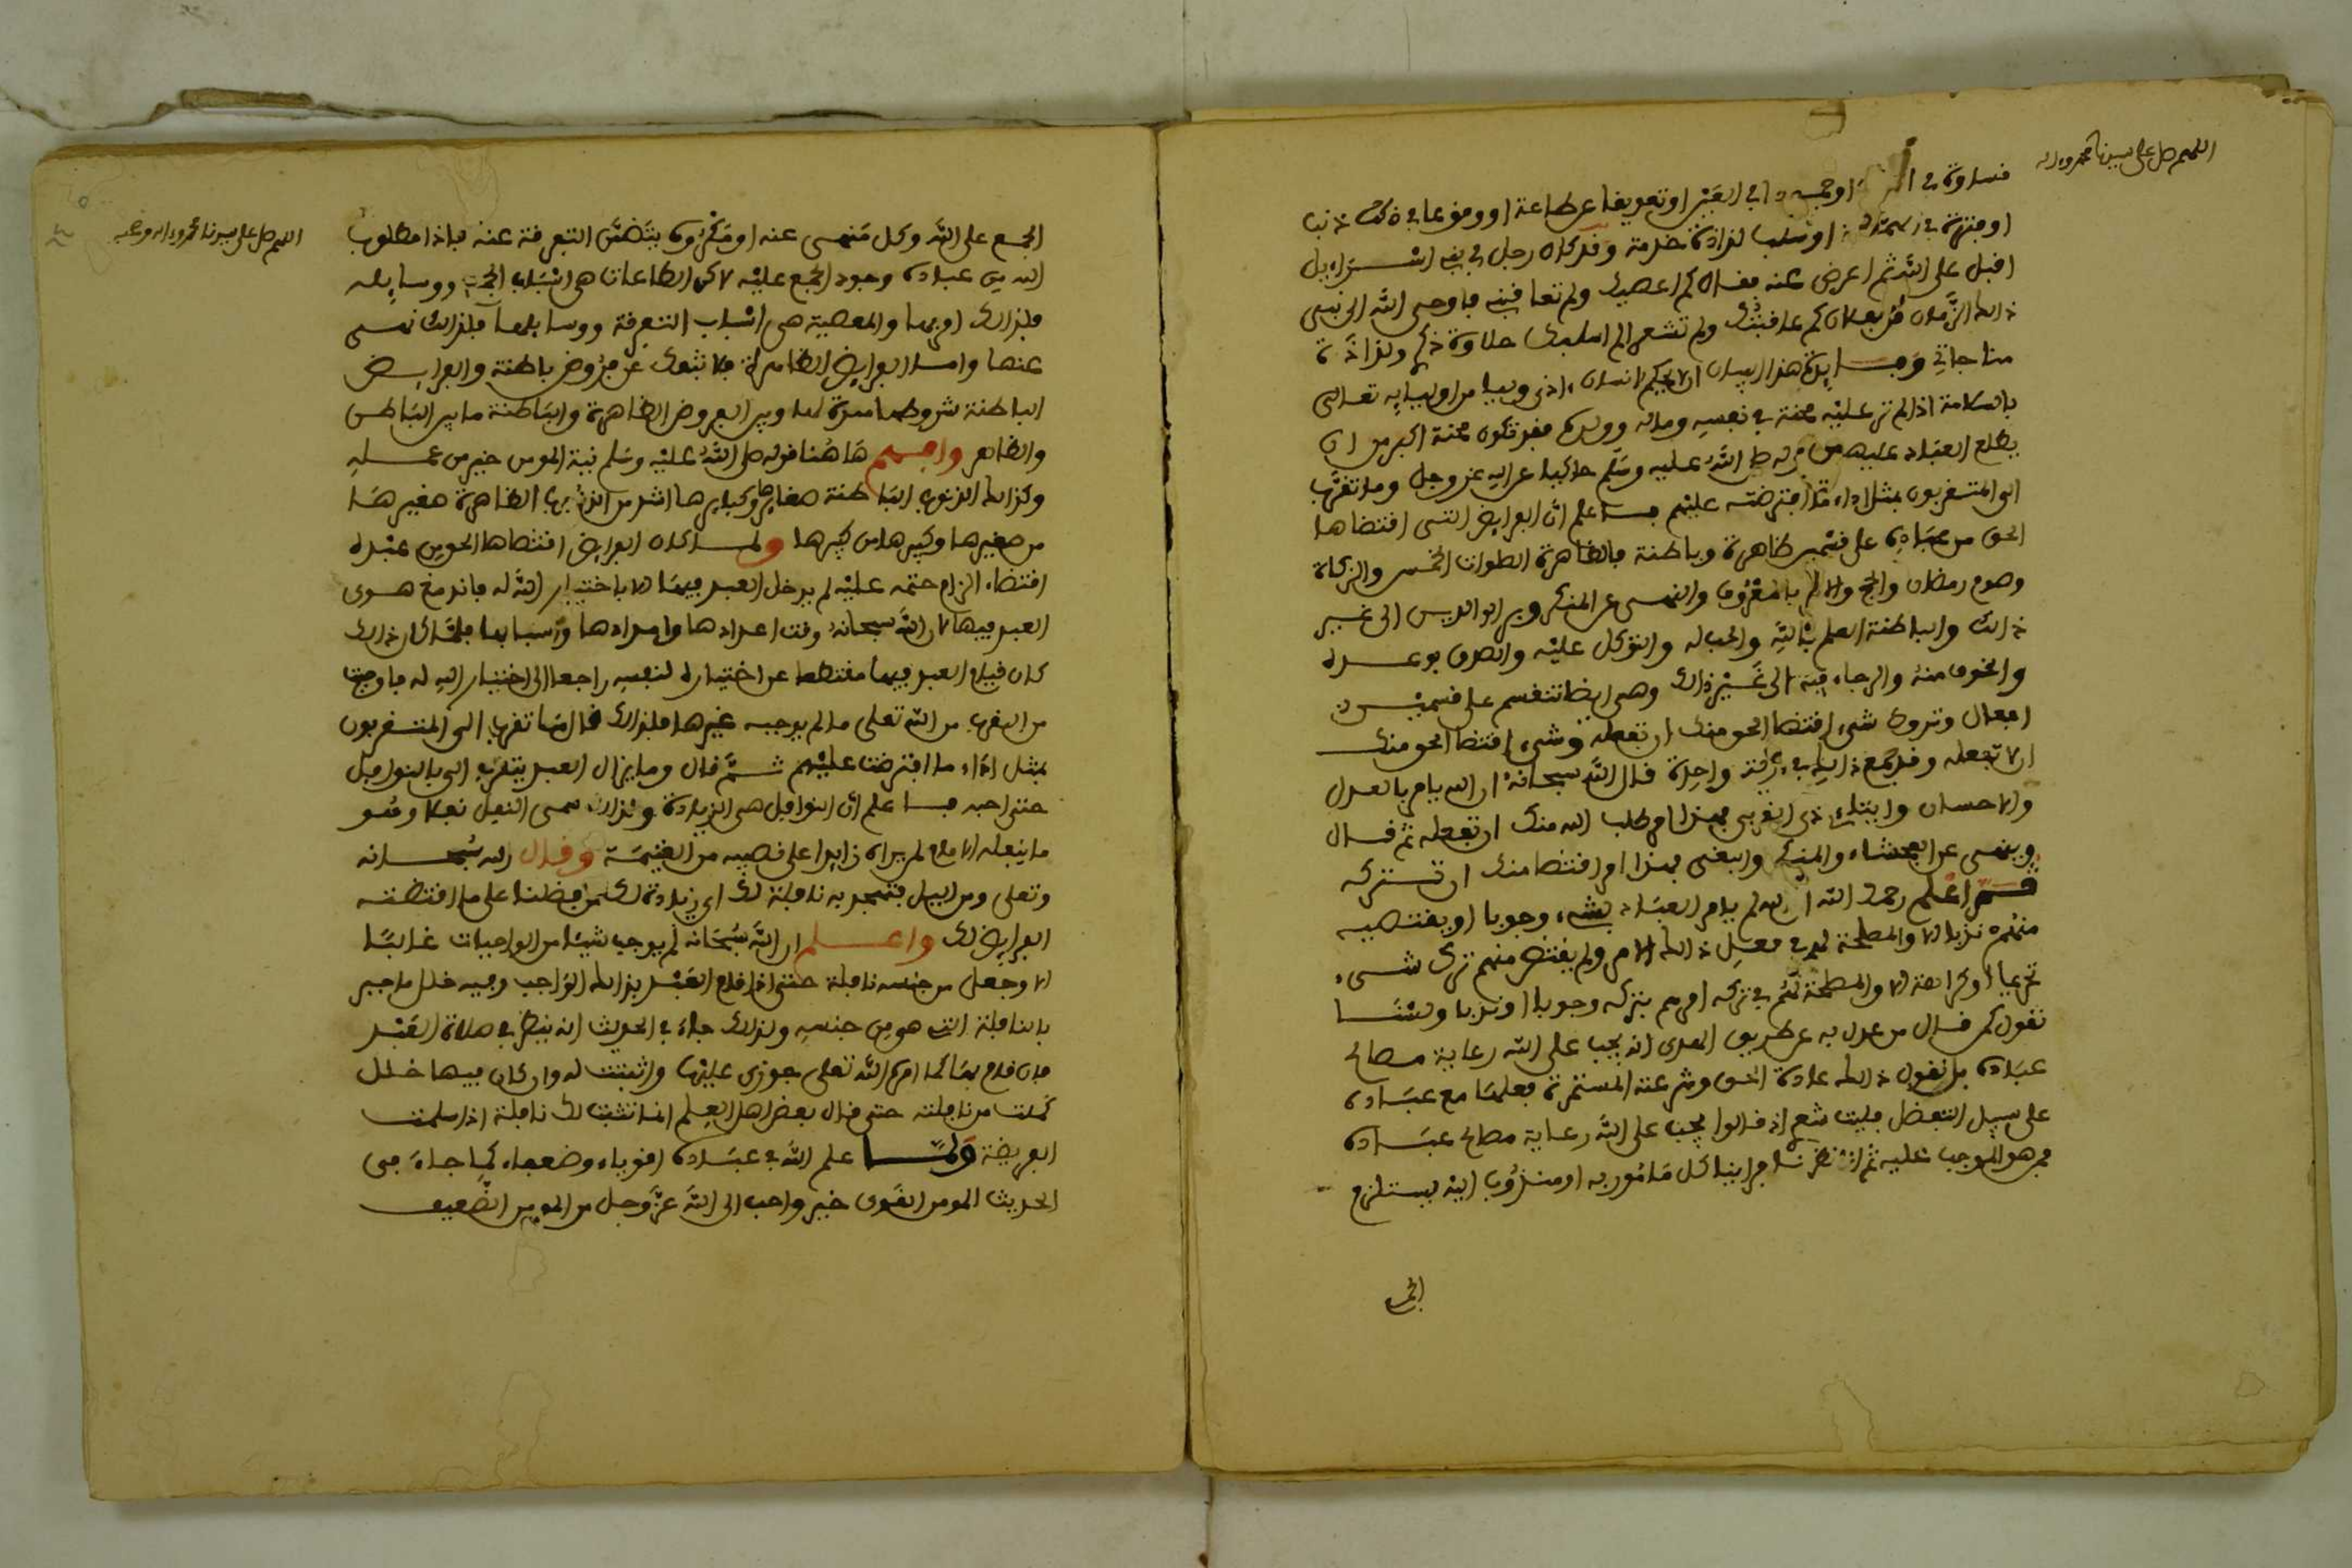 اللهم صل على سيدنا محمد واله
قساوة في او جمودا في العين او تعويقا عن طاعة او وقوعا في ذنب
او فترة في الهمة او سلب لذاذة خدمة وقد كان رجل في بني اسراءيل
اقبل على الله ثم اعرض عنه فقال كم اعصيك ولم تعاقبني فاوحى الله الى نبي
ذالك الزمان قل لفلان كم عاقبتك ولم تشعر الم اسلبك حلاوة ذكري ولذاذة
مناجاتي وفايدة هذا البيان ان لا يحكم لانسان اذى وليا من اولياء الله تعالى
بالسلامة اذا لم تر عليه محنة في نفسه وماله وولده فقد تكون محنة اكبر من ان
يطلع العباد عليها من قوله صلى الله عليه وسلم حاكيا عن الله عز وجل وما تقرب
الي المتقربون بمثل اداء ما افترضته عليهم فاعلم ان الفرايض التي اقتضاها
الحق من عباده على قسمين ظاهرة وباطنة فالظاهرة الصلوات الخمس والزكاة
وصوم رمضان والحج والامر بالمعروف والنهي عن المنكر وبر الوالدين الى غير
ذالك والباطنة العلم بالله والحب له والتوكل عليه والصدق بوعده
والخوف منه والرجاء فيه الى غير ذالك وهي ايضا تنقسم على قسمين
افعال وتروك شيء اقتضا الحق منك ان تفعله وشيء اقتضا الحق منك
ان لا تفعله وقد جمع ذالك في اية واحدة قال الله سبحانه ان الله يامر بالعدل
والاحسان وايتاء ذي القربى فهذا امر طلب الله منك ان تفعله ثم قال
وينهى عن الفحشاء والمنكر والبغي فهذا امر اقتضا منك ان تتركه
ثم اعلم رحمك الله ان الله لم يامر العباد بشيء وجوبا او يقتضيه
منهم ندبا الا والمصلحة لهم في فعل ذالك الامر ولم يقتض منهم ترك شيء
تحريما او كراهة الا والمصلحة لهم في تركه امرهم بتركه وجوبا او ندبا ولسنا
نقول كمن قال من عدل به عن طريق الهدى انه يجب على الله رعاية مصالح
عباده بل نقول ذالك عادة الحق وشرعته المستمرة فعلها مع عباده
على سبيل التفضل فليت شعري اذ قالوا يجب على الله رعاية مصالح عباده
فمن هو الموجب عليه ثم انا نظرنا فراينا كل مامور به او مندوب اليه يستلزم
الجمع
اللهم صل على سيدنا محمد واله وصحبه
الجمع على الله وكل منهي عنه او مكروه يتضمن التفرقة عنه فاذا مطلوب
الله من عباده وجود الجمع عليه لاكن الطاعات هي اسباب الجمع ووسايله
فلذالك امر بها والمعصية هي اسباب التفرقة ووسايلها فلذالك نهى
عنها وامـا الفرايض الظاهرة فلا تنفك عن فروض باطنة والفرايض
الباطنة شروطها ممدة لها وبين الفروض الظاهرة والباطنة ما بين الباطن
والظاهر وافـهـم هاهنا قوله صلى الله عليه وسلم نية المومن خير من عمله
وكذالك الذنوب الباطنة صغايرها وكبايرها اشد من الذنوب الظاهرة صغيرها
من صغيرها وكبيرها من كبيرها ولـما كان الفرايض اقتضاها الحق من عبده
اقتضاء الزام حتمه عليه لم يدخل العبد فيها الا باختيار الله له فاندمغ هوى
العبد فيها لان الله سبحانه وقت اعدادها وامدادها واسبابها فلما كان ذالك
كان قيام العبد فيها مقتطعا عن اختياره لنفسه راجعا الى اختيار الله له فاوجبت
من القرب من الله تعلى ما لم يوجبه غيرها فلذالك قال ما تقرب الي المتقربون
بمثل اداء ما افترضت عليهم ثـم قال وما يزال العبد يتقرب الي بالنوافل
حتى احبه فـاعلم ان النوافل هي الزيادة ولذالك سمى النفل نفلا وهو
ما ينفله الامام لمن يراه زايدا على نصيبه من الغنيمة وقال الله سبحانه
وتعلى ومن اليل فتهجد به نافلة لك اي زيادة لك من فضلنا على ما اقتضته
الفرايض لك واعـلـم ان الله سبحانه لم يوجب شيئا من الواجبات غالبا
الا وجعل من جنسه نافلة حتى اذا قام العبد بذالك الواجب وفيه خلل ما جبر
بالنافلة التي هو من جنسه ولذالك جاء في الحديث انه ينظر في صلاة العبد
فان قام بها كما امره الله تعلى جوزي عليها واثبتت له وان كان فيها خلل
كملت من نافلته حتى قال بعض اهل العلم انما تثبت لك نافلة اذا سلمت
الفريضة ولـما علم الله في عباده اقوياء وضعفاء كما جاء في
الحديث المومن القوى خير واحب الى الله عز وجل من المومن الضعيف